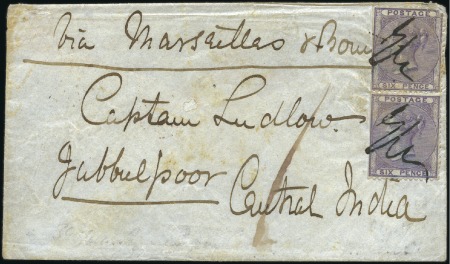 via Marseilles & Bom
POSTAGE
SIX PENCE
POSTAGE
SIX PENCE
Captain Ludlow
Jubbulpoor
Central India